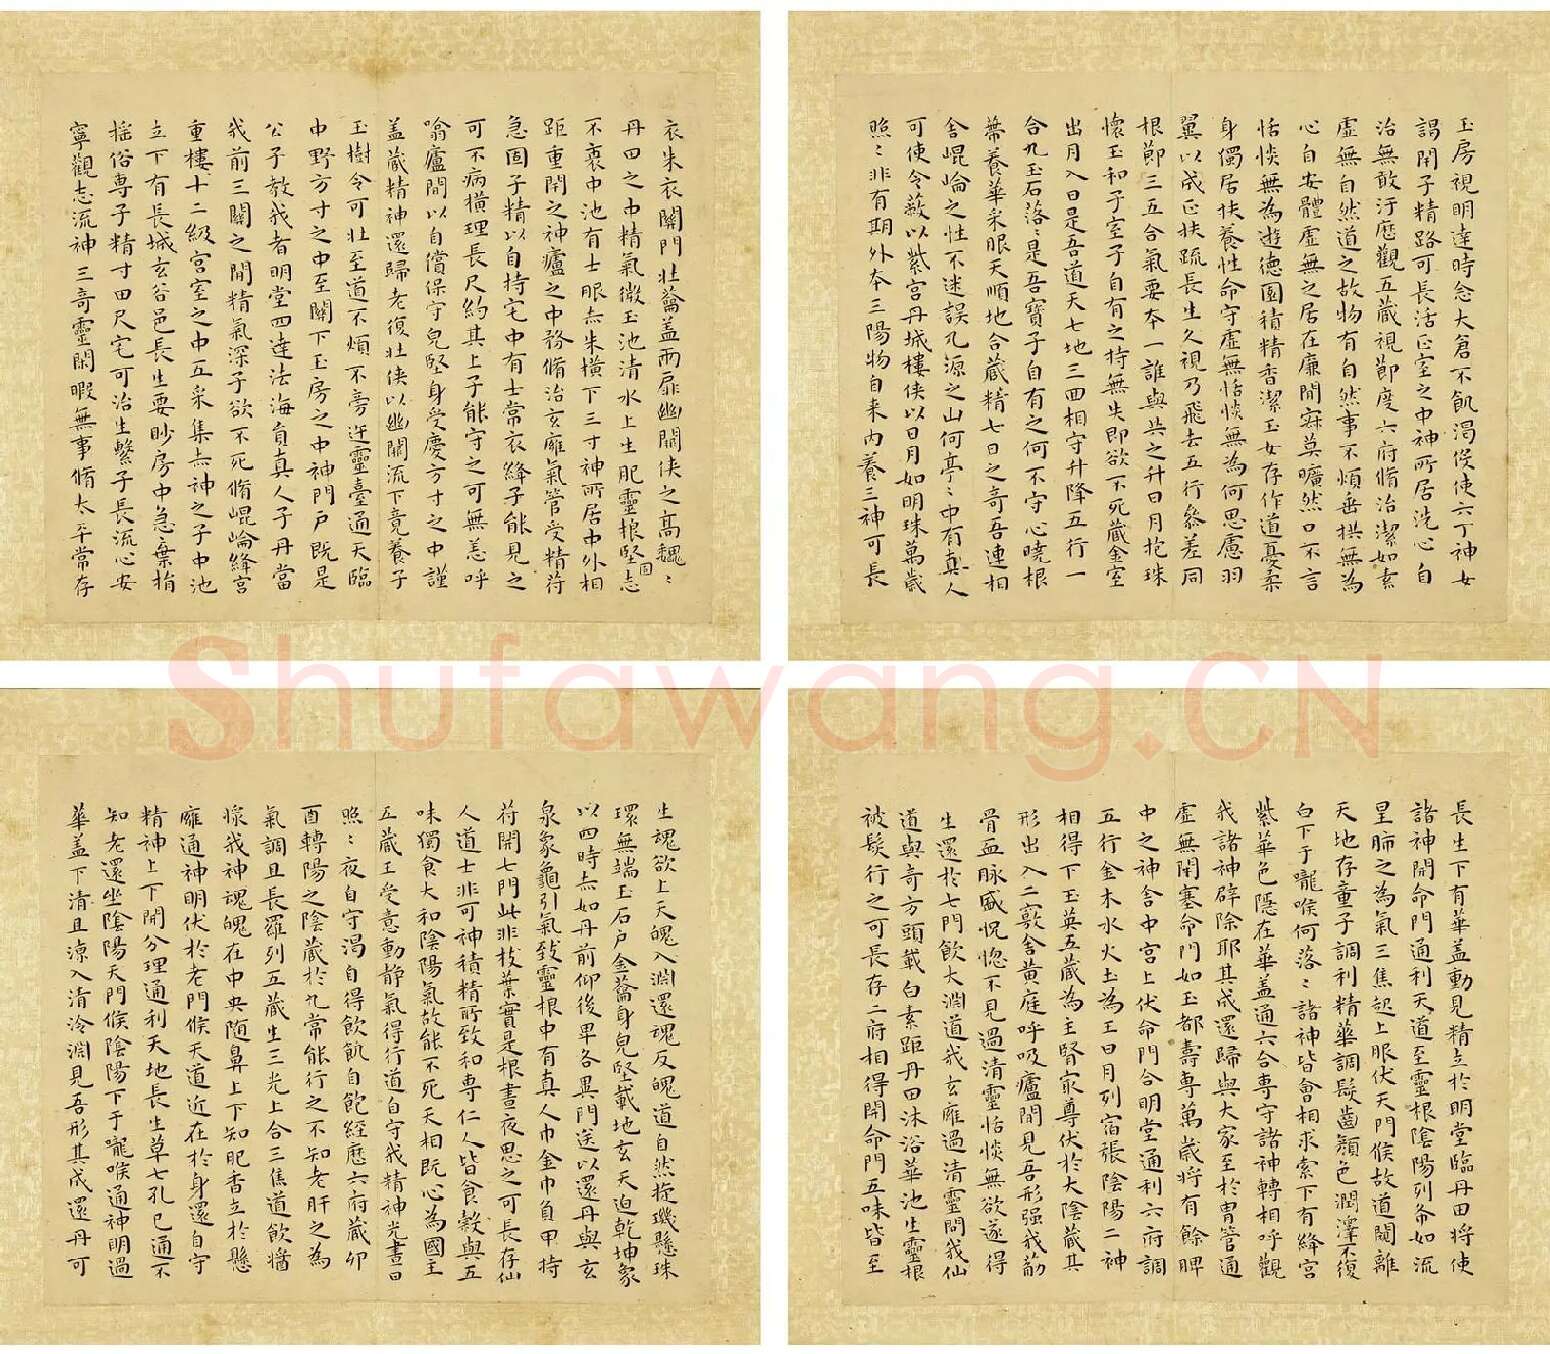 衣朱衣關門壯籥蓋兩扉幽闕俠之高巍〻
丹田之中精氣微玉池清水上生肥靈根堅固志
不衰中池有士服赤朱橫下三寸神所居中外相
距重閇之神廬之中務脩治玄癰氣管受精符
急固子精以自持宅中有士常衣絳子能見之
可不病橫理長尺約其上子能守之可無恙呼
噏廬間以自償保守皃堅身受慶方寸之中謹
蓋藏精神還歸老復壯俠以幽闕流下竟養子
玉樹令可壯至道不煩不旁迕靈臺通天臨
中野方寸之中至關下玉房之中神門戶既是
公子教我者明堂四達法海負真人子丹當
我前三關之間精氣深子欲不死脩崐崘絳宮
重樓十二級宮室之中五采集赤神之子中池
立下有長城玄谷邑長生要眇房中急棄捐
搖俗專子精寸田尺宅可治生繫子長流心安
寧觀志流神三奇靈閑暇無事脩太平常存
玉房視明達時念大倉不飢渴俟使六丁神女
謁閇子精路可長活正室之中神所居洗心自
治無敢汙歷觀五藏視節度六府脩治潔如素
虛無自然道之故物有自然事不煩垂拱無為
心自安體虛無之居在廉間寂莫曠然口不言
恬惔無為遊德園積精香潔玉女存作道憂柔
身獨居扶養性命守虛無恬惔無為何思慮羽
翼以成正扶疏長生久視乃飛去五行參差同
根節三五合氣要本一誰與共之升日月抱珠
懷玉和子室子自有之持無失即欲不死藏金室
出月入日是吾道天七地三回相守升降五行一
合九玉石落〻是吾寶子自有之何不守心曉根
蒂養華采服天順地合藏精七日之奇吾連相
舍崐崘之性不迷誤九源之山何亭〻中有真人
可使令蔽以紫宮丹城樓俠以日月如明珠萬歲
照〻非有期外本三陽物自来內養三神可長
生魂欲上天魄入淵還魂反魄道自然挻璣懸珠
環無端玉石戶金籥身皃堅載地玄天迫乾坤象
以四時赤如丹前仰後卑各異門送以還丹與玄
泉象龜引氣致靈根中有真人巾金巾負甲持
符開七門此非枝葉實是根晝夜思之可長存仙
人道士非可神積精所致和專仁人皆食穀與五
味獨食大和陰陽氣故能不死天相既心為國主
五藏王受意動静氣得行道自守我精神光晝日
照〻夜自守渴自得飲飢自飽經歷六府藏卯
酉轉陽之陰藏於九常能行之不知老肝之為
氣調且長羅列五藏生三光上合三焦道飲醬
懷我神魂魄在中央隨鼻上下知肥香立於懸
雍通神明伏於老門候天道近在於身還自守
精神上下開分理通利天地長生草七孔已通不
知老還坐陰陽天門候陰陽下于嚨喉通神明過
華蓋下清且涼入清泠淵見吾形其成還丹可
長生下有華蓋動見精立於明堂臨丹田將使
諸神開命門通利天道至靈根陰陽列布如流
星肺之為氣三焦起上服伏天門候故道闚離
天地存童子調利精華調髮齒顏色潤澤不復
白下于嚨喉何落〻諸神皆會相求索下有絳宮
紫華色隱在華蓋通六合專守諸神轉相呼觀
我諸神辟除耶其成還歸與大家至於胃管通
虛無閇塞命門如玉都壽專萬歲將有餘脾
中之神舍中宮上伏命門合明堂通利六府調
五行金木水火土為王日月列宿張陰陽二神
相得下玉英五藏為主腎家尊伏於大陰藏其
形出入二竅舍黃庭呼吸廬間見吾形强我筋
骨血脉盛怳惚不見過清靈恬惔無欲遂得
生還於七門飲大淵道我玄雍過清靈問我仙
道與奇方頭載白素距丹田沐浴華池生靈根
被髮行之可長存二府相得開命門五味皆至
Shufawang.CN